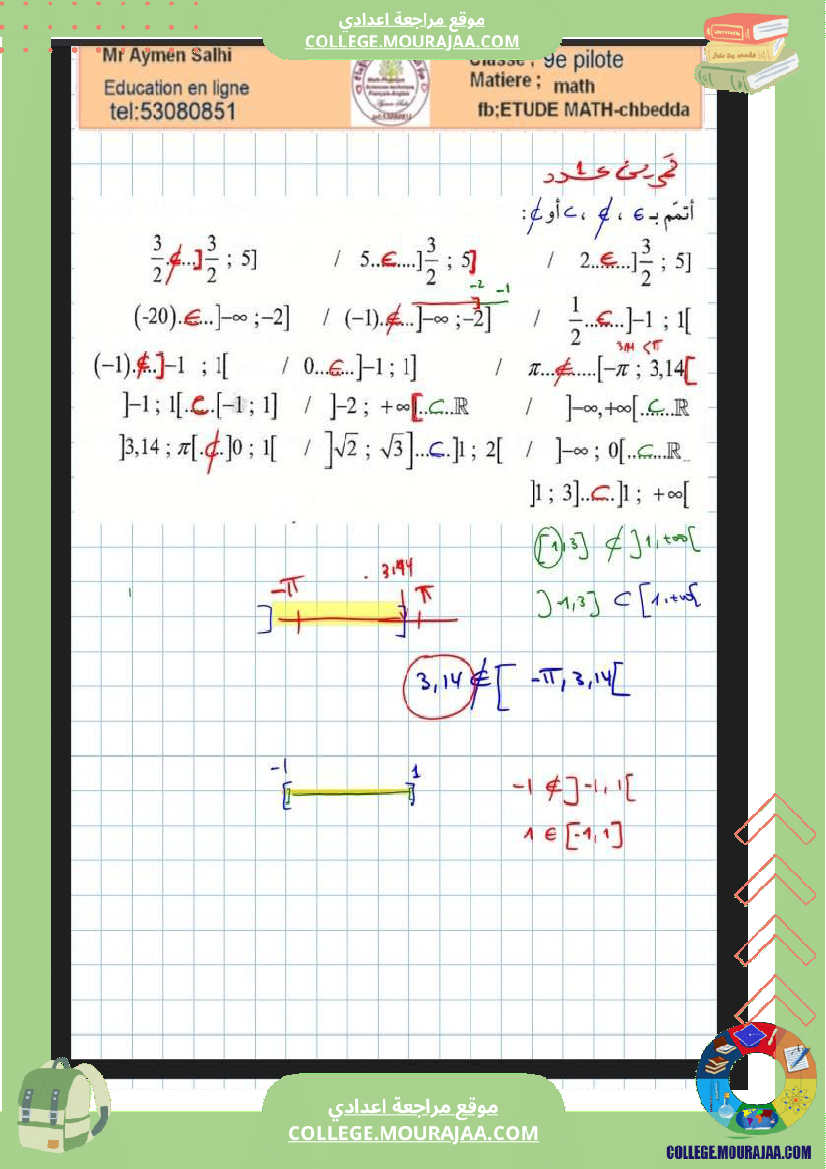 موقع مراجعة اعدادي
COLLEGE.MOURAJAA.COM
Mr Aymen Salhi
Education en ligne
tel:53080851
Classe ; 9e pilote
Matiere ; math
fb;ETUDE MATH-chbedda
تمرين عدد 1
أتمّم بـ ∈ ، ∉ ، ⊂ أو ⊄ :
3/2 .∉...]3/2 ; 5] / 5..∈....]3/2 ; 5] / 2...∈...]3/2 ; 5]
-2 -1
(-20).∈...]-∞ ;-2] / (-1).∉...]-∞ ;-2] / 1/2 ...∈...]-1 ; 1[
3,14 < π
(-1).∉..]-1 ; 1[ / 0...∈...]-1 ; 1] / π...∉.....[-π ; 3,14[
]-1 ; 1[..⊂.[-1 ; 1] / ]-2 ; +∞[..⊂..ℝ / ]-∞,+∞[..⊂....ℝ
]3,14 ; π[.⊄.]0 ; 1[ / ]√2 ; √3]...⊂.]1 ; 2[ / ]-∞ ; 0[..⊂...ℝ
]1 ; 3]..⊂..]1 ; +∞[
[1,3] ⊄ ]1,+∞[
-π 3,14 π
]1,3] ⊂ [1,+∞[
3,14 ∉ [ -π, 3,14[
-1 1
-1 ∉ ]-1, 1[
1 ∈ [-1, 1]
موقع مراجعة اعدادي
COLLEGE.MOURAJAA.COM
COLLEGE.MOURAJAA.COM